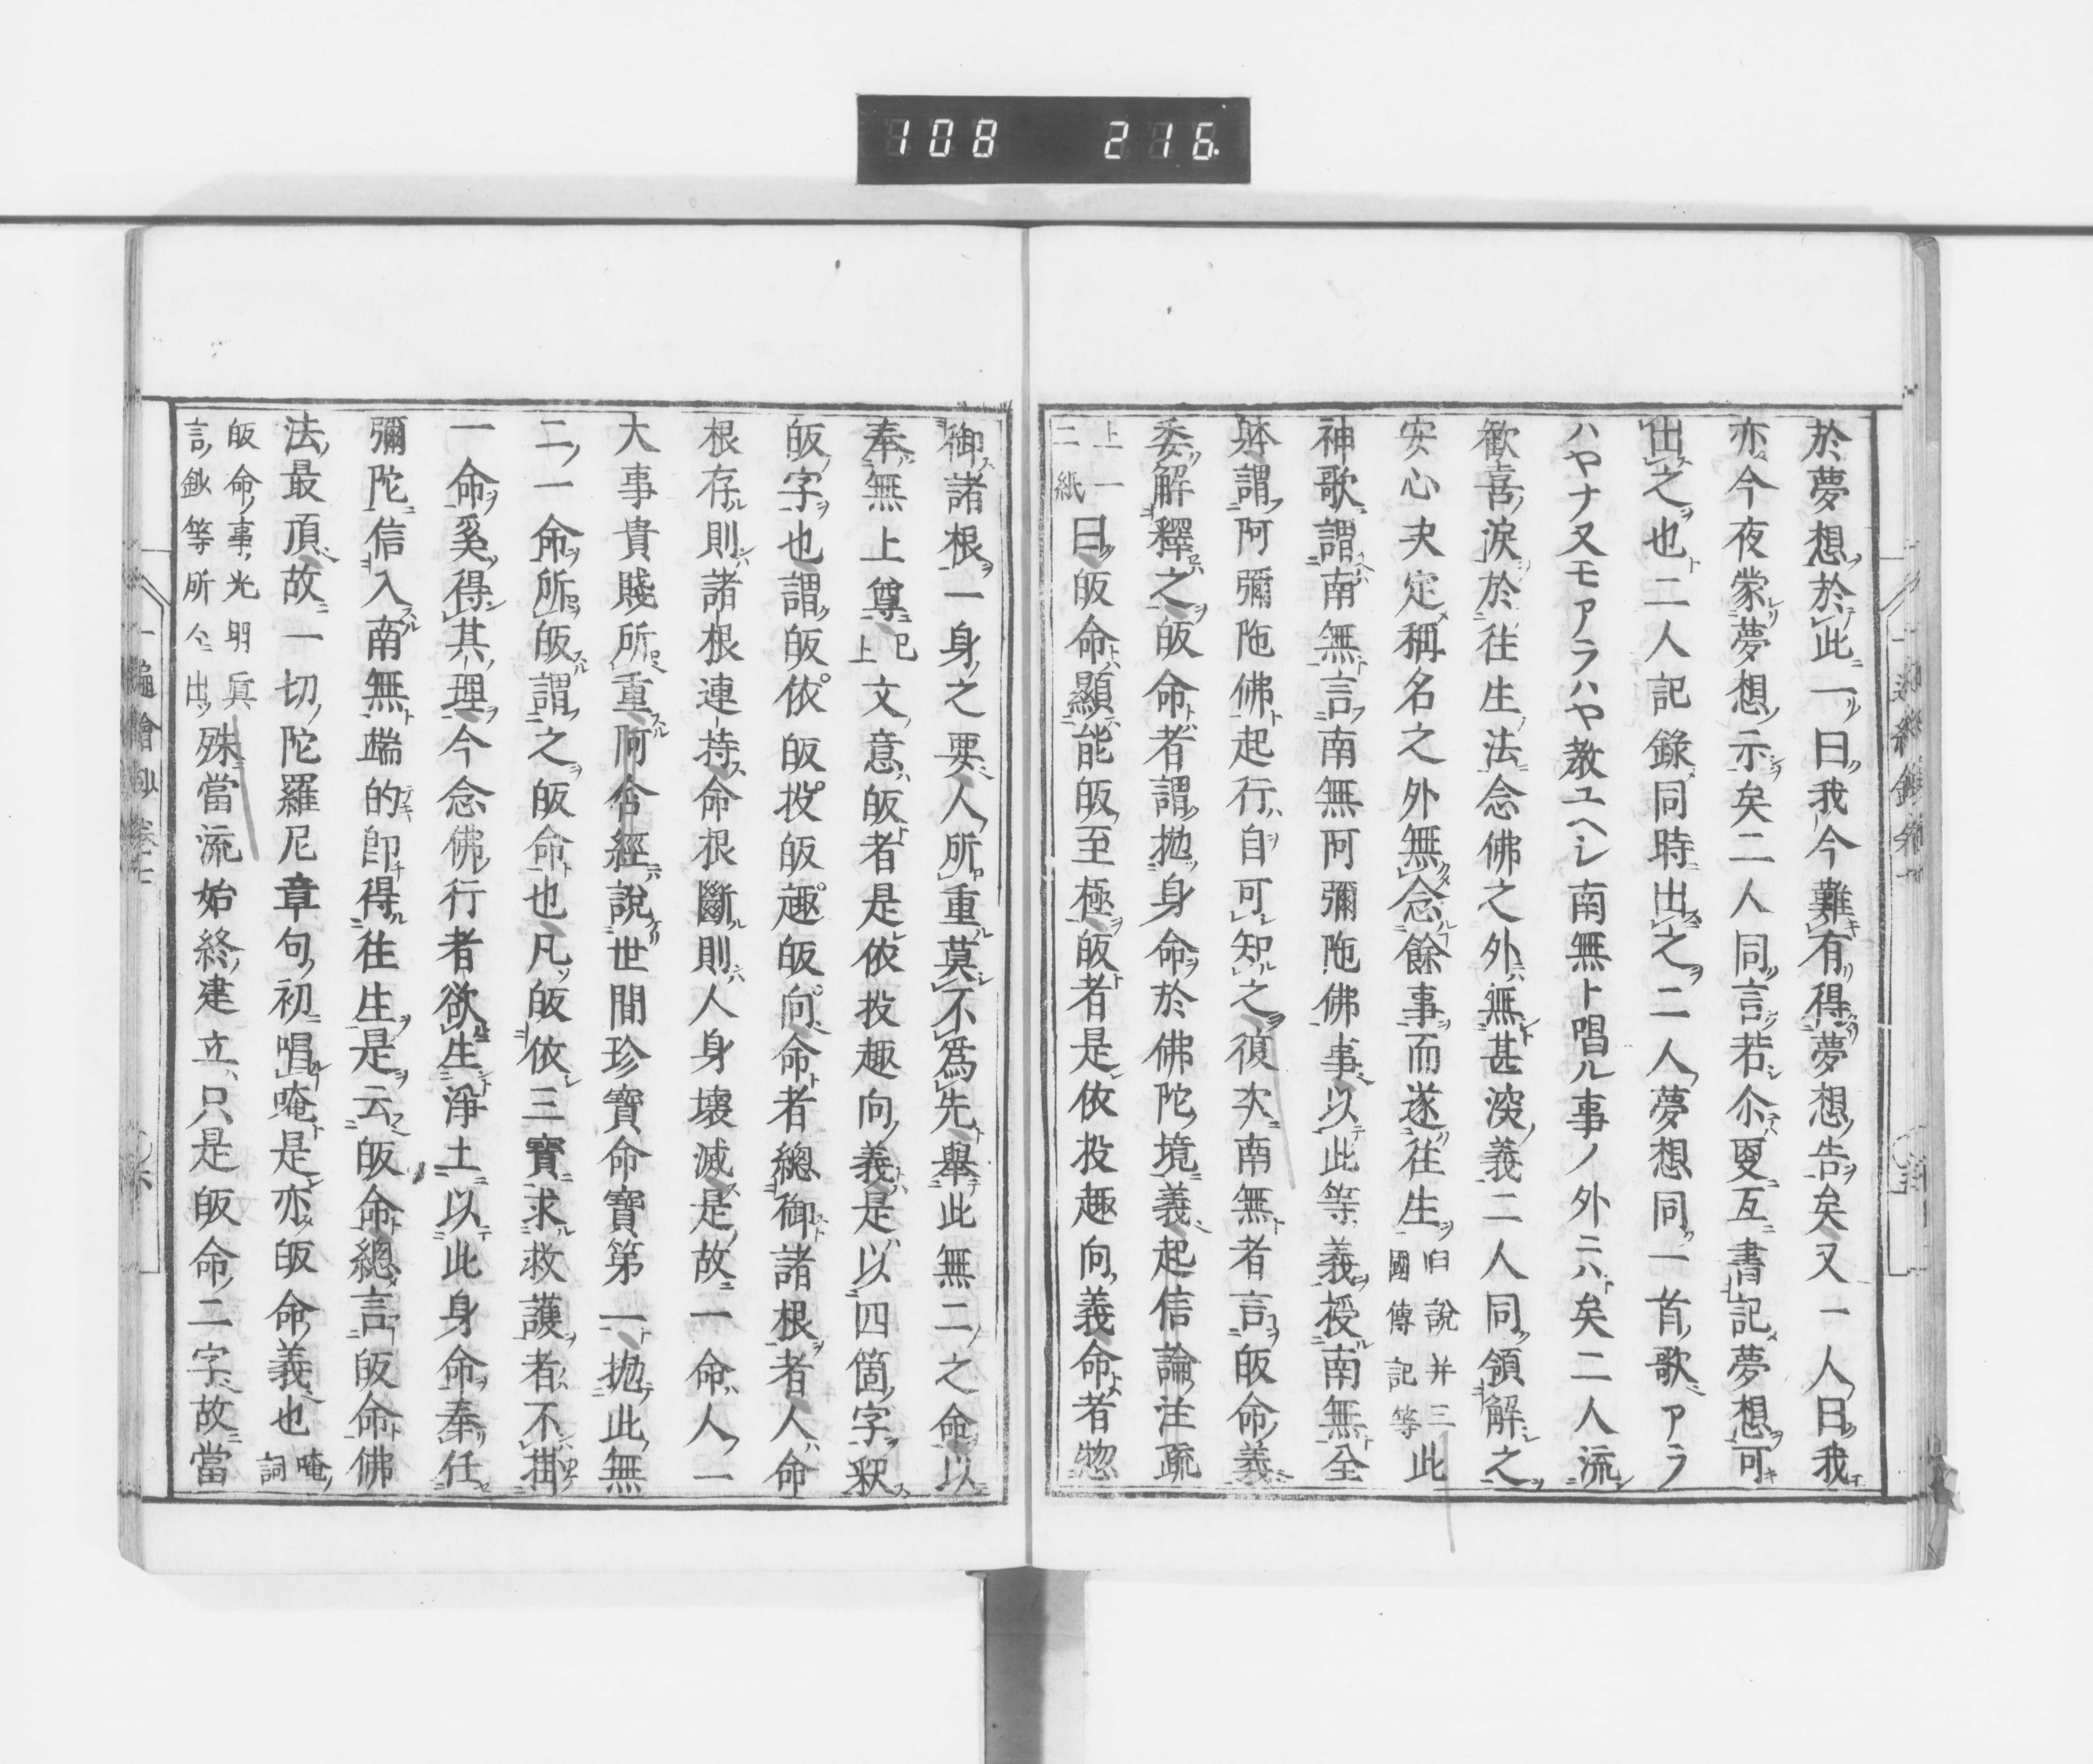 108 216
於夢想於此一曰我今難有得夢想告矣又一人曰我
亦今夜蒙夢想示矣二人同言若尒㪅互書記夢想可
出之也二人記錄同時出之二人夢想同一首歌アラ
ハヤナ又モアラハヤ教ユヘシ南無ト唱ル事ノ外ニハ矣二人流
歓喜涙於往生法念佛之外無甚深義二人同領解之
安心决定稱名之外無念餘事而遂往生旧說并三國傳記等此
神歌謂南無言南無阿彌陁佛事以此等義授南無全
躰謂阿彌陁佛起行自可知之復次南無者言皈命義
委解釋之皈命者謂拋身命於佛陀境義起信論注疏
上一二紙曰皈命顯能皈至極皈者是依投趣向義命者惣
御諸根一身之要人所重莫不爲先舉此無二之命以
奉無上尊已上文意皈者是依投趣向義是以四箇字釈
皈字也謂皈依皈投皈趣皈向命者總御諸根者人命
根存則諸根連持命根斷則人身壞滅是故一命人一
大事貴賤所重阿含經說世間珍寶命寶第一拋此無
二一命所皈謂之皈命也凡皈依三寶求救護者不掛
一命奚得其理今念佛行者欲生淨土以此身命奉任
彌陀信入南無端的卽得往生是云皈命總言皈命佛
法最頂故一切陀羅尼章句初唱唵是亦皈命義也唵詞
皈命事光明眞言鈔等所仝出殊當流始終建立只是皈命二字故當
一遍繪鈔卷七